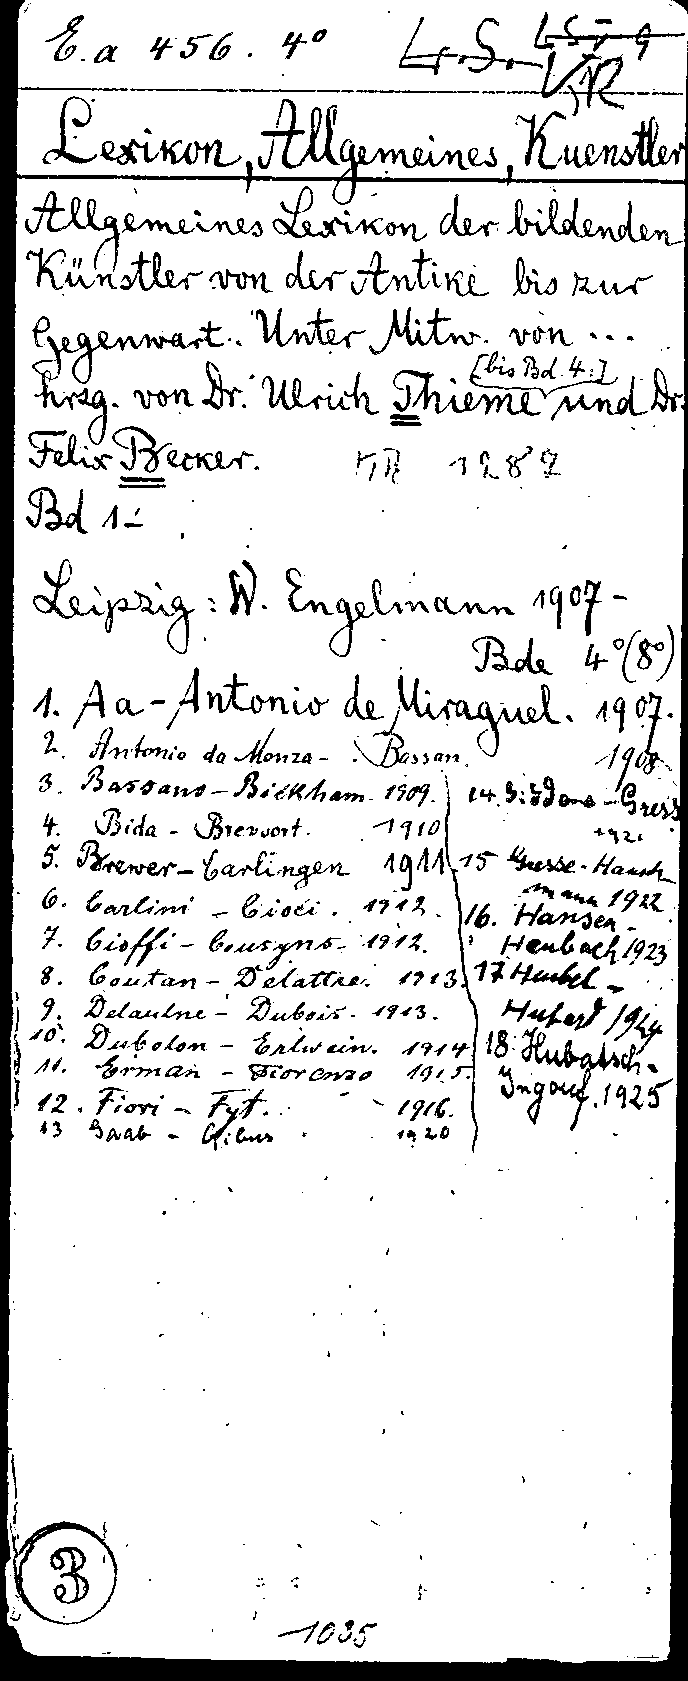 E.a 456. 4°
L.S.
Lexikon, Allgemeines, Kuenstler
Allgemeines Lexikon der bildenden
Künstler von der Antike bis zur
Gegenwart. Unter Mitw. von ...
[bis Bd. 4:]
hrsg. von Dr. Ulrich Thieme und Dr.
Felix Becker.
Bd 1-
Leipzig: W. Engelmann 1907-
Bde 4°(8°)
1. Aa-Antonio de Miraguel. 1907.
2. Antonio da Monza- Bassan. 1908
3. Bassano-Bickham. 1909.
4. Bida - Brevoort. 1910
5. Brewer-Carlingen 1911
6. Carlini - Cioci. 1912.
7. Cioffi - Cousyns. 1912.
8. Coutan - Delattre. 1913.
9. Delaulne - Dubois. 1913.
10. Dubolon - Erlwein. 1914
11. Erman - Fiorenzo 1915.
12. Fiori - Fyt. 1916.
13 Gaab - Gibus 1920
14. Giddens - Gress
1921
15 Gresse - Hansch
mann 1922
16. Hansen -
Heubach 1923
17 Heubel -
Hubard 1924
18. Hubatsch -
Ingouf. 1925
3
1035